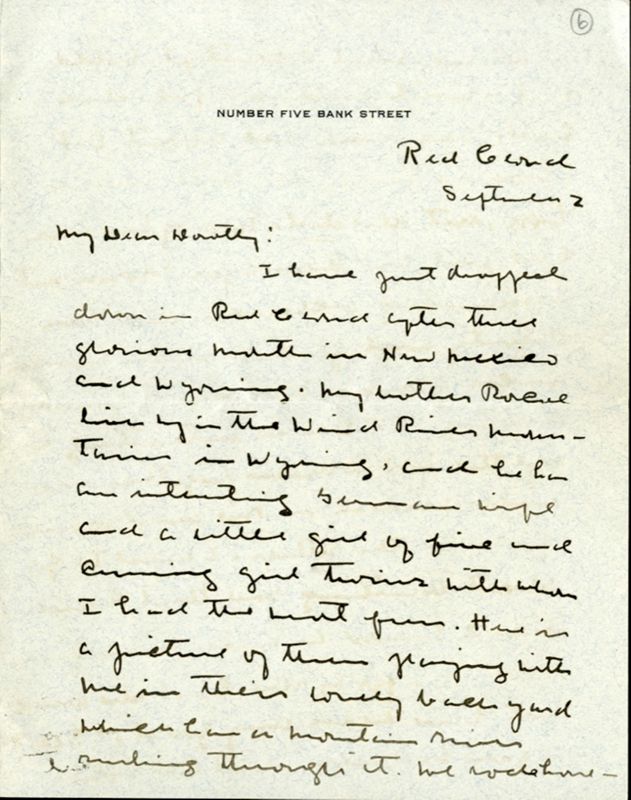 6
NUMBER FIVE BANK STREET
Red Cloud
September 2
My Dear Dorothy:
I have just dropped
down in Red Cloud after three
glorious months in New Mexico
and Wyoming. My brother Roscoe
lives up in the Wind River moun-
tains in Wyoming, and he has
an interesting German wife
and a little girl of five and
cunning girl twins with whom
I had the most fun. Here is
a picture of them playing with
me in their lovely back yard
which has a mountain river
rushing through it. We rode horse-